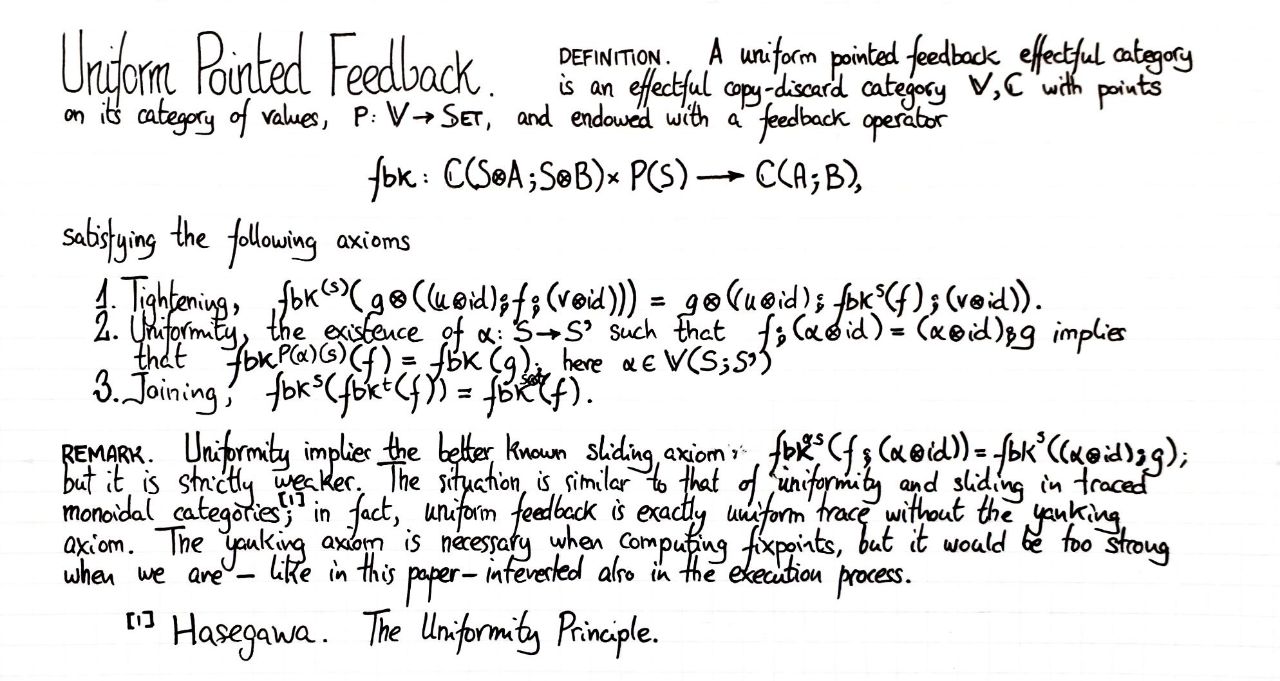 Uniform Pointed Feedback. DEFINITION. A uniform pointed feedback effectful category
is an effectful copy-discard category 𝕍, ℂ with points
on its category of values, P: 𝕍 → SET, and endowed with a feedback operator
fbk: ℂ(S⊗A;S⊗B) × P(S) ⟶ ℂ(A;B),
satisfying the following axioms
1. Tightening, fbk⁽ˢ⁾(g⊗((u⊗id);f;(v⊗id))) = g⊗(u⊗id); fbkˢ(f);(v⊗id)).
2. Uniformity, the existence of α: S→S' such that f;(α⊗id) = (α⊗id);g implies
that fbk^P(α)(s)(f) = fbk (g); here α∈𝕍(S;S')
3. Joining, fbkˢ(fbkᵗ(f)) = fbkˢ⊗ᵗ(f).
REMARK. Uniformity implies the better known sliding axiom, fbk^αs(f;(α⊗id)) = fbkˢ((α⊗id);g);
but it is strictly weaker. The situation is similar to that of uniformity and sliding in traced
monoidal categories;[1] in fact, uniform feedback is exactly uniform trace without the yanking
axiom. The yanking axiom is necessary when computing fixpoints, but it would be too strong
when we are – like in this paper – interested also in the execution process.
[1] Hasegawa. The Uniformity Principle.